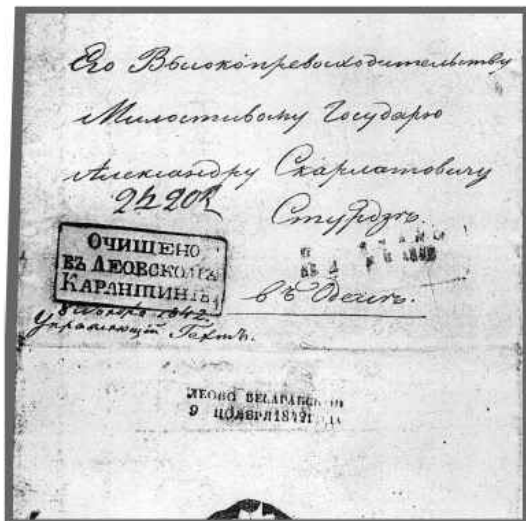 Его Высокопревосходительству
Милостивому Государю
Александру Скарлатовичу
Стурдзѣ.
въ Одессѣ.
ОЧИЩЕНО
ВЪ ЛЕОВСКОМЪ
КАРАНТИНѢ
8 ноября 1842.
Управляющій
ЛЕОВО БЕСАРАБСКОЙ
9 НОЯБРЯ 1842 ГОДА